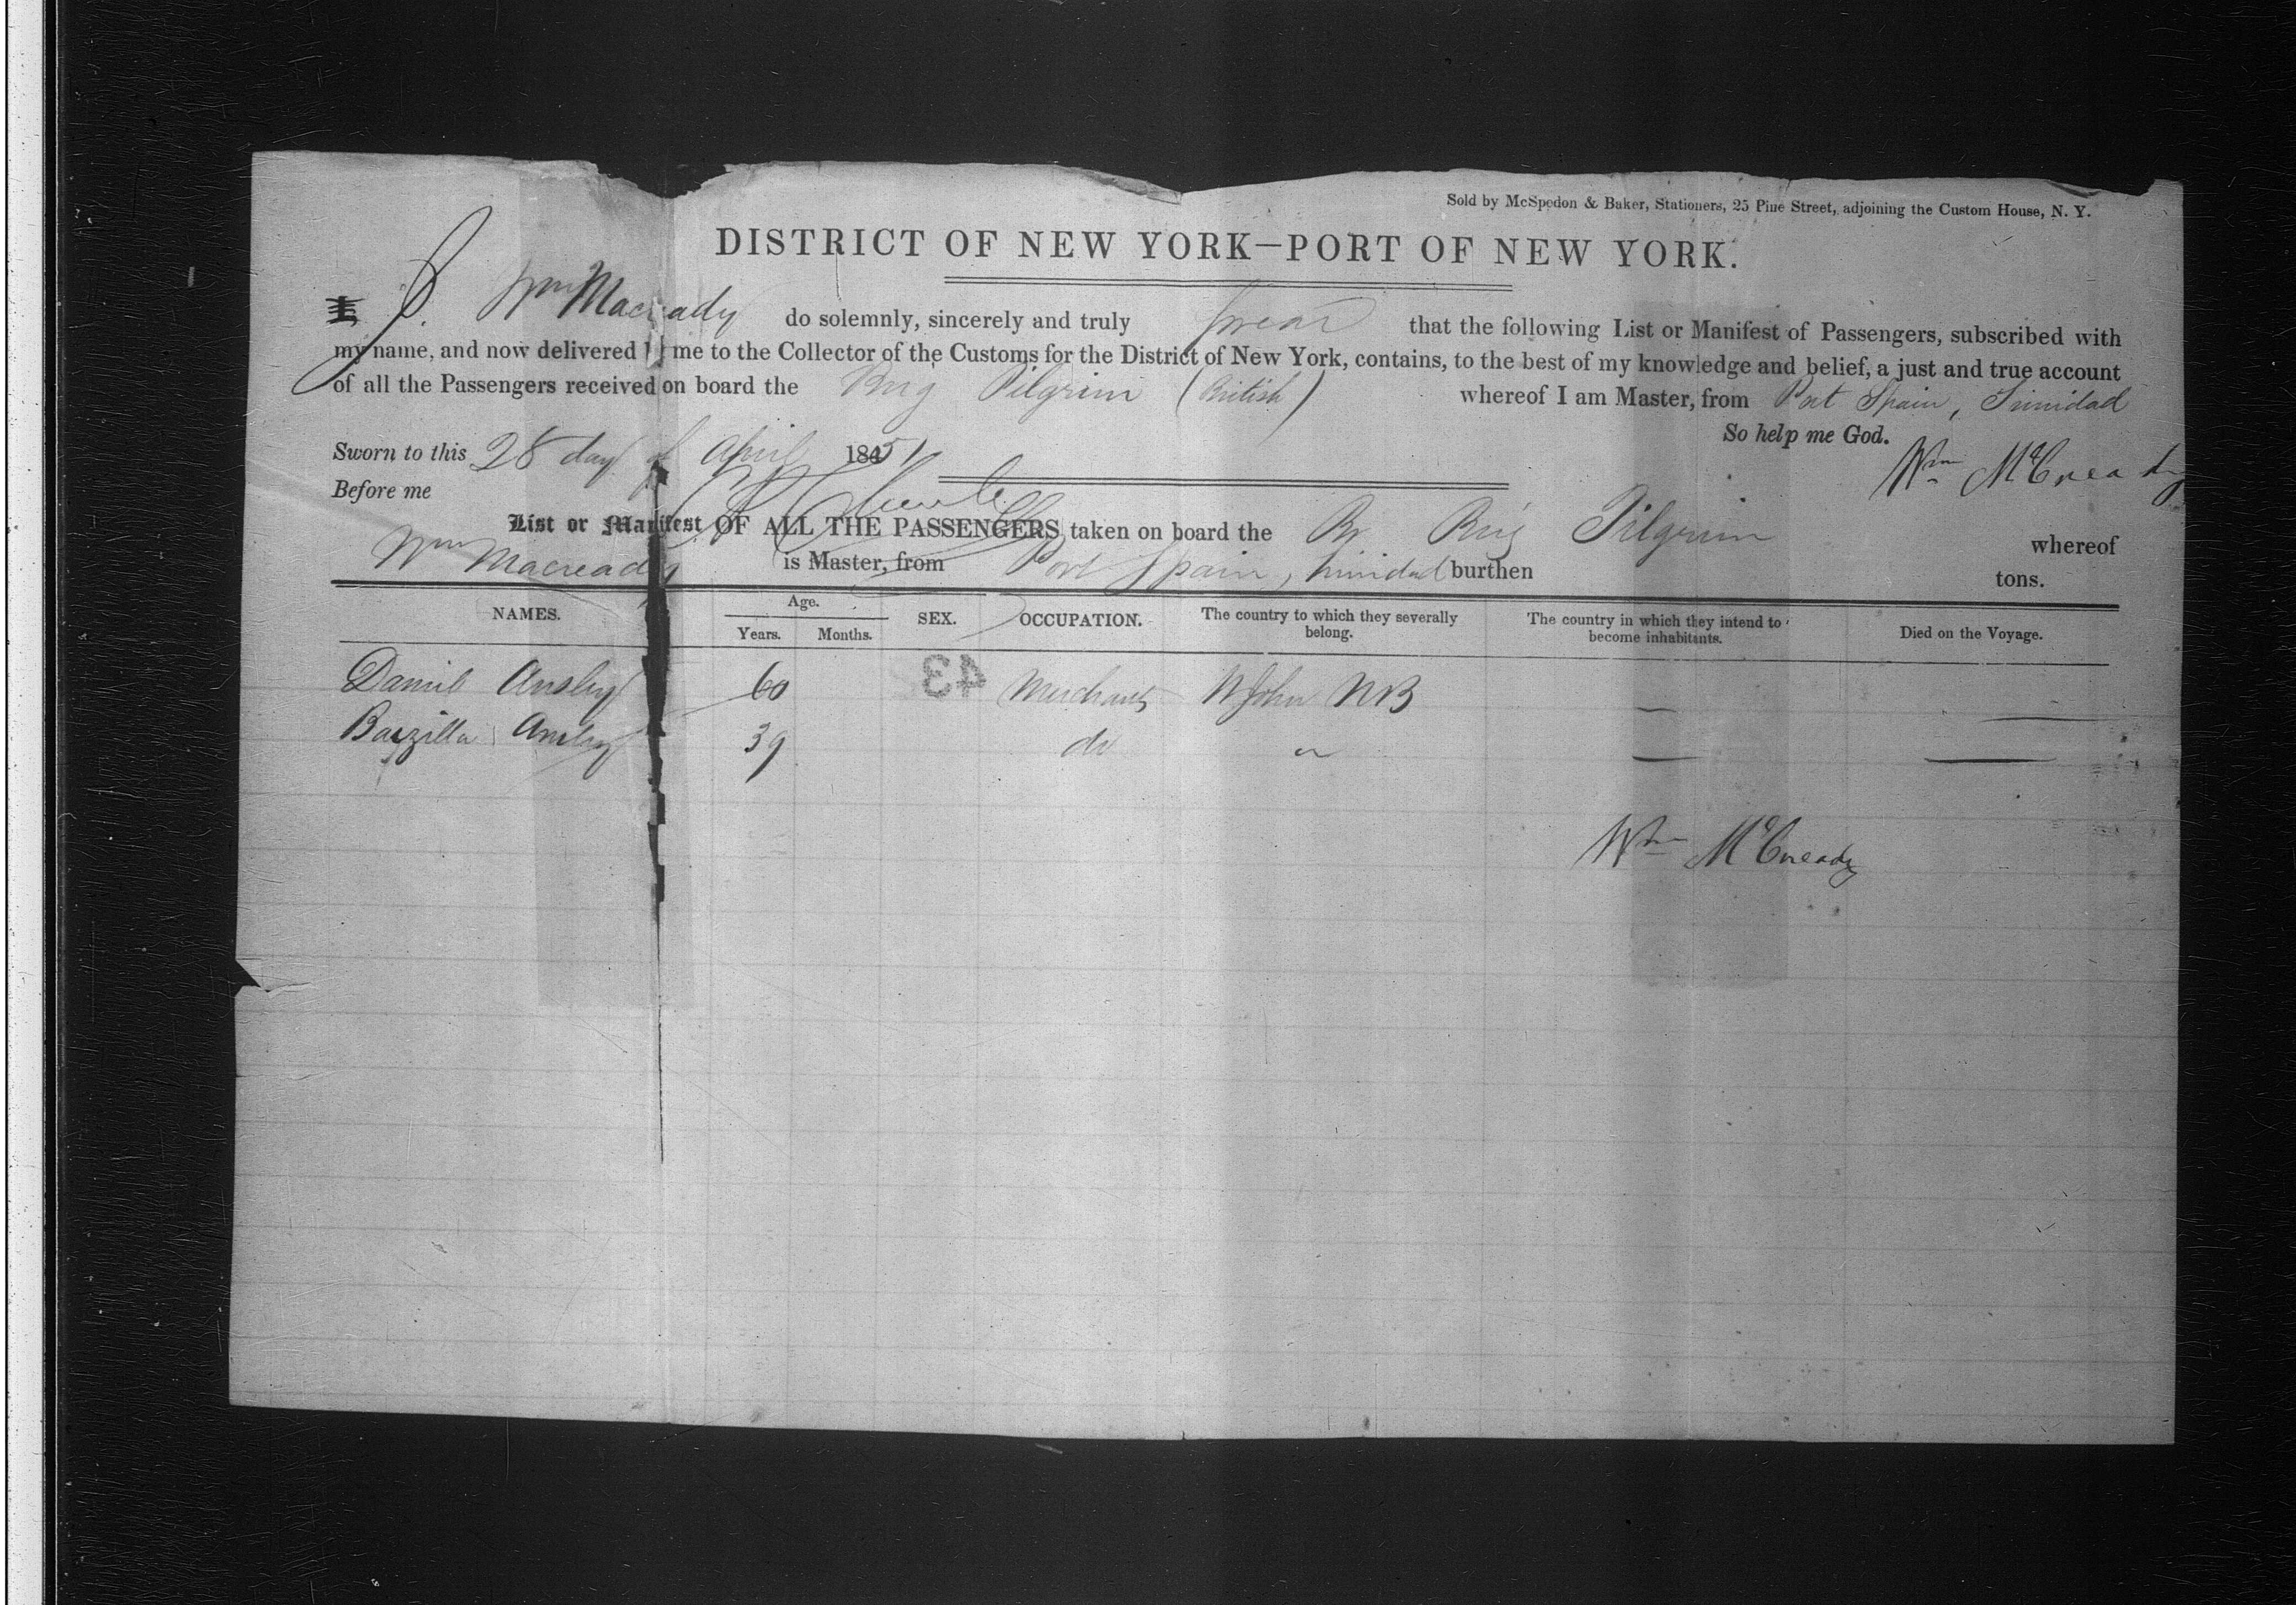 Sold by McSpedon & Baker, Stationers, 25 Pine Street, adjoining the Custom House, N. Y.
DISTRICT OF NEW YORK—PORT OF NEW YORK.
I, Wm Macready do solemnly, sincerely and truly swear that the following List or Manifest of Passengers, subscribed with
my name, and now delivered me to the Collector of the Customs for the District of New York, contains, to the best of my knowledge and belief, a just and true account
of all the Passengers received on board the Brig Pilgrim (British) whereof I am Master, from Port Spain, Trinidad
So help me God.
Sworn to this 28 day of April 1851
Wm McCready
Before me
List or Manifest OF ALL THE PASSENGERS taken on board the Br Brig Pilgrim whereof
Wm Macready is Master, from Port Spain, Trinidad burthen tons.
NAMES. Age. Years. Months. SEX. OCCUPATION. The country to which they severally belong. The country in which they intend to become inhabitants. Died on the Voyage.
Daniel Ansley 60 43 Merchant St John NB — —
Barzilla Ansley 39 do " — —
Wm McCready